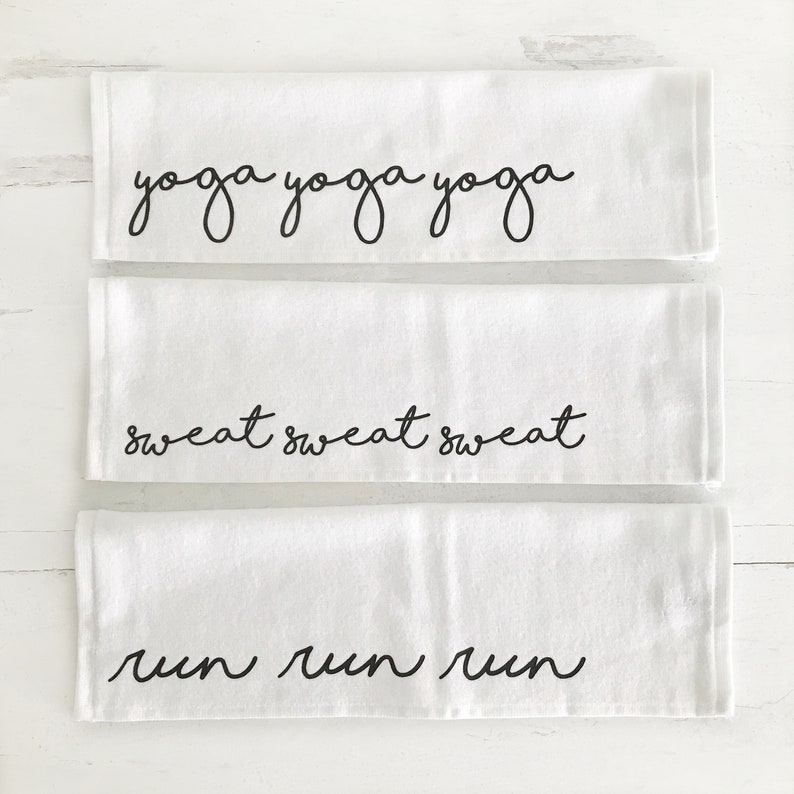 yoga yoga yoga
sweat sweat sweat
run run run